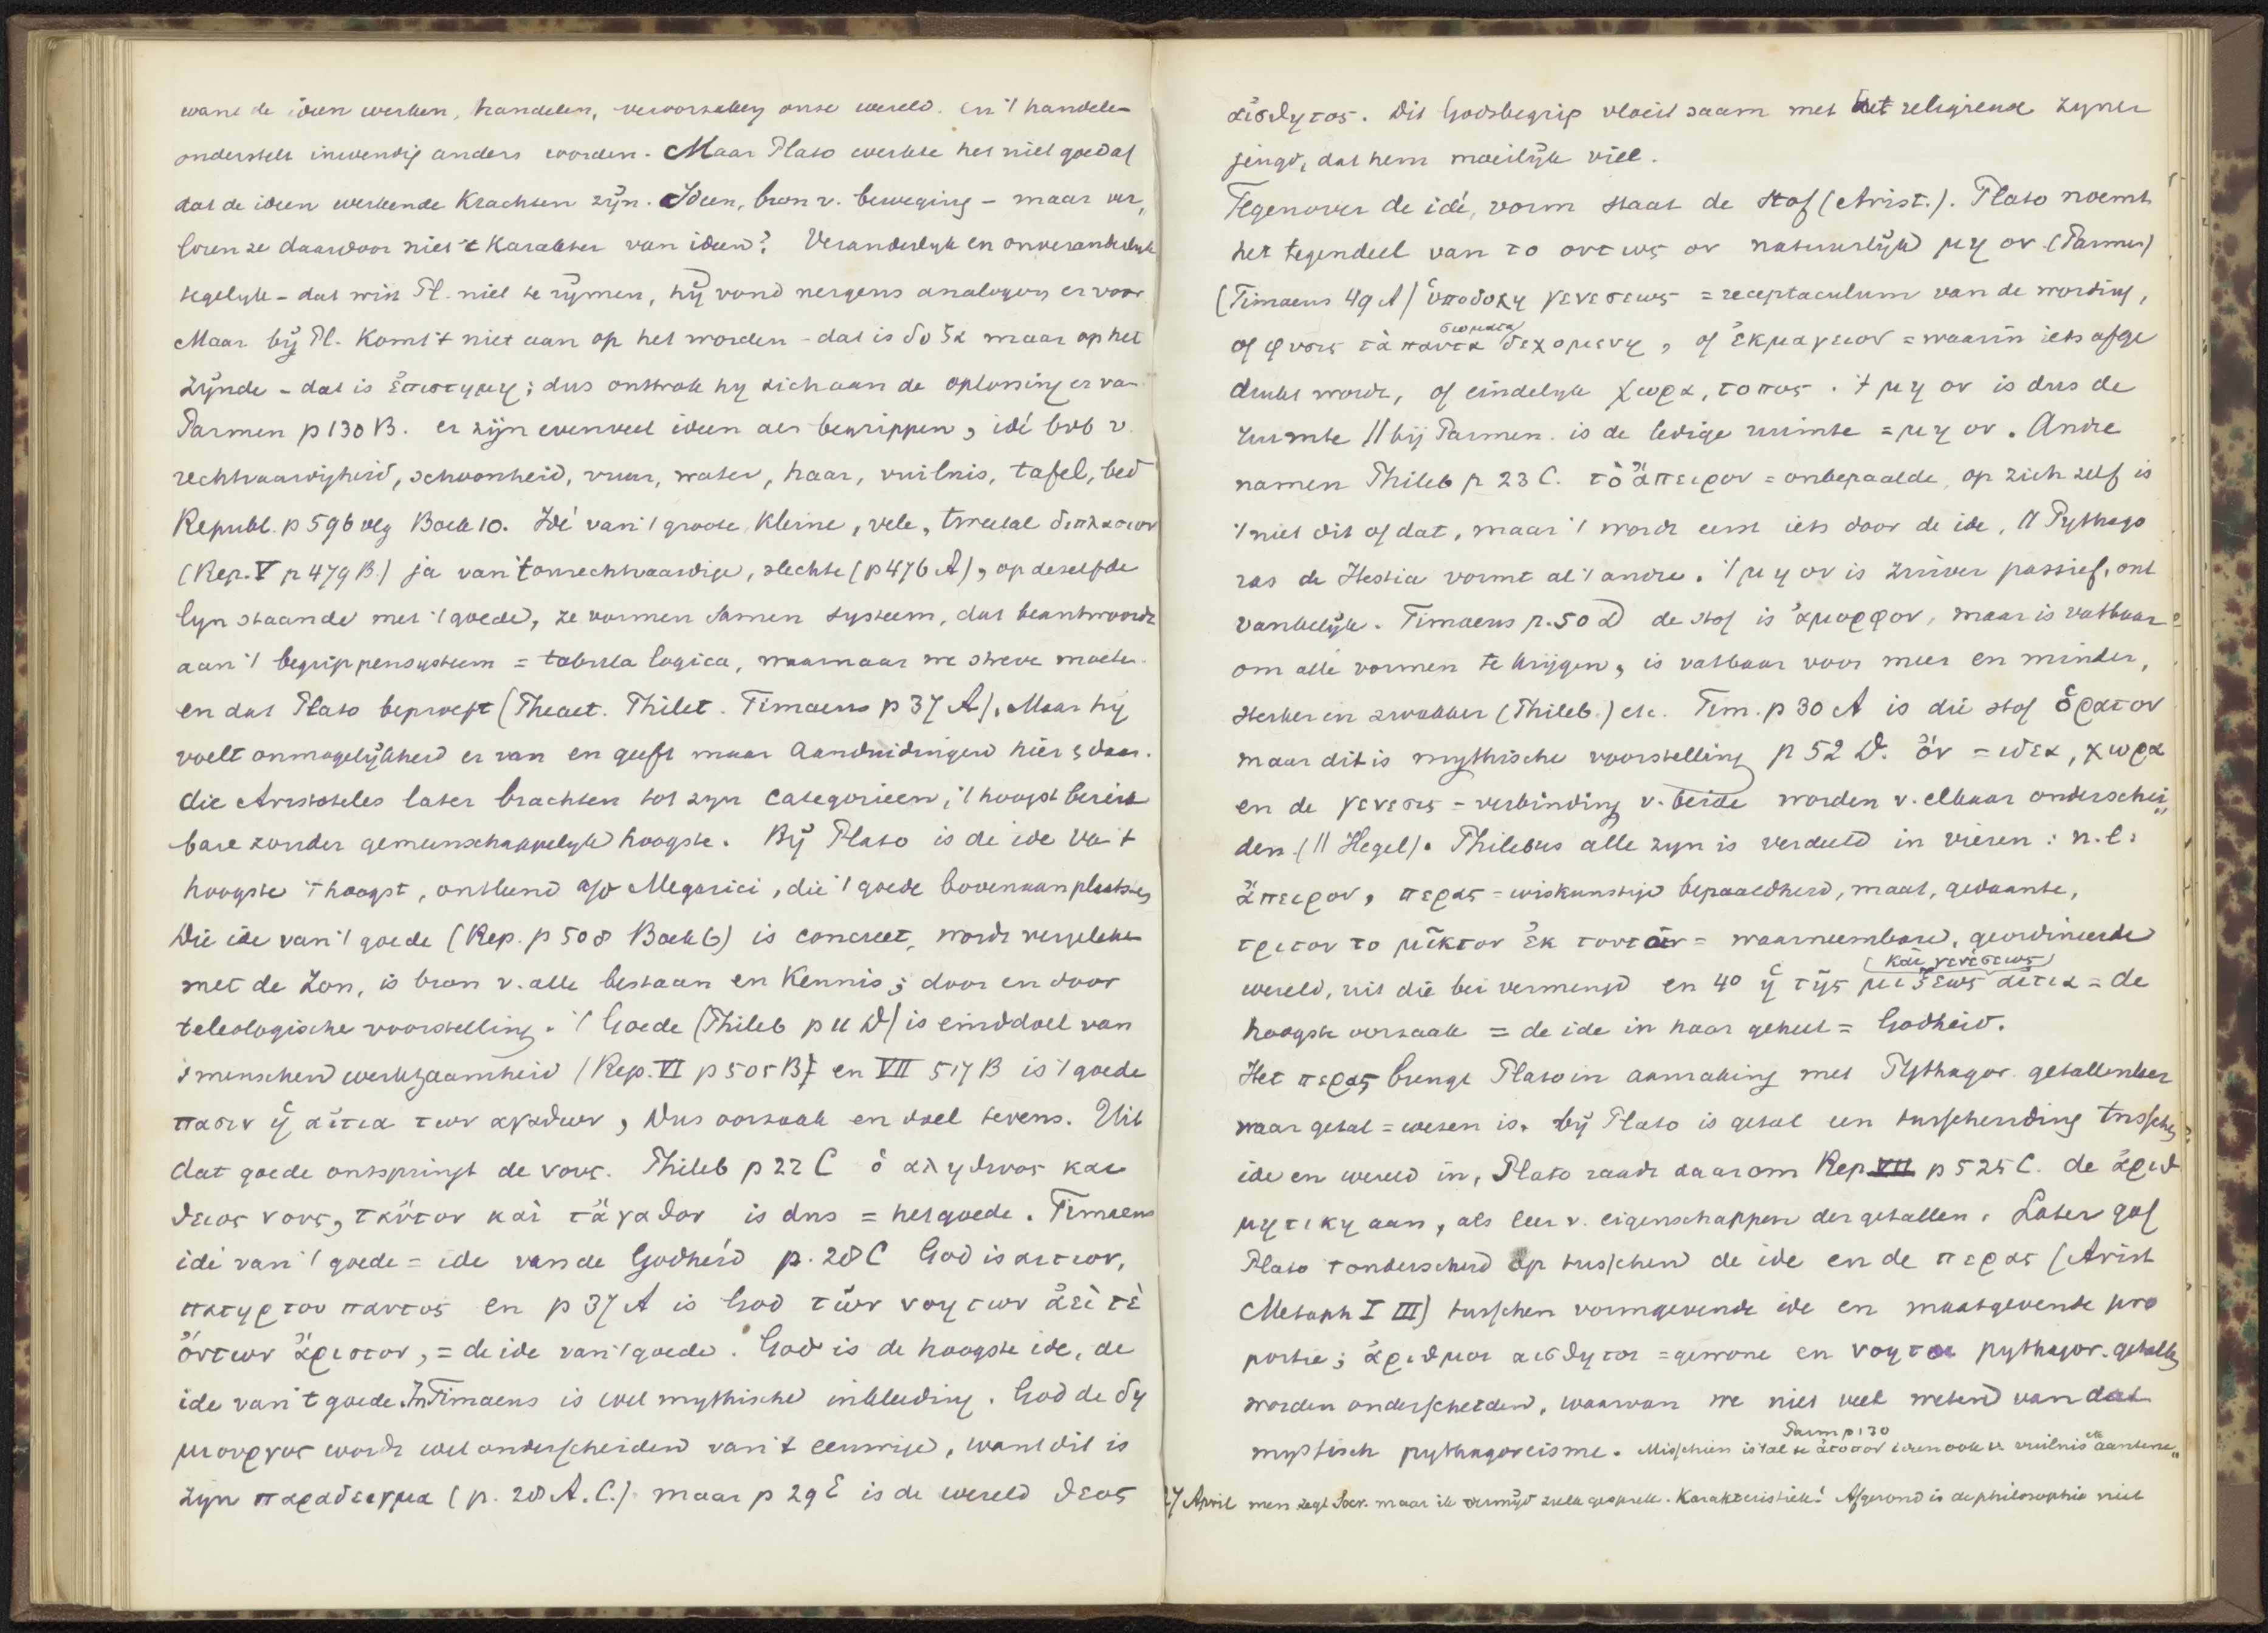 want de ideen werken, handelen, veroorzaken onze wereld. en 't handelen
onderstelt inwendig anders worden. Maar Plato werkte het niet goed af
dat de ideen werkende krachten zijn. Ideen, bron v. beweging – maar ver„
loren ze daardoor niet 't Karakter van ideen? Veranderlyk en onveranderlyk
tegelyk – dat wist Pl. niet te rijmen, hij vond nergens analogon er voor
Maar bij Pl. komt 't niet aan op het worden – dat is δοξα maar op het
zijnde – dat is ἐπιστημη; dus onttrok hy zich aan de oplossing er van
Parmen p 130 B. er zijn evenveel ideen als begrippen, idé bvb v.
rechtvaardigheid, schoonheid, vuur, water, haar, vuilnis, tafel, bed
Republ. p 596 vlg Boek 10. Idé van 't groote, kleine, vele, tweetal διπλασιον
(Rep. V p 479 B.) ja van 't onrechtvaardige, slechte (p 476 A), op dezelfde
lyn staande met 't goede, ze vormen samen systeem, dat beantwoordt
aan 't begrippensysteem = tabula logica, waarnaar we streve moeten
en dat Plato beproeft (Theaet. Phileb. Timaeus p 37 A). Maar hy
voelt onmogelijkheid er van en geeft maar aanduidingen hier & daar.
die Aristoteles later brachten tot zyn categorieen, 't hoogst bereik
bare zonder gemeenschappelyk hoogste. Bij Plato is de ide van 't
hoogste 't hoogst, ontleend a/d Megarici, die 't goede bovenaan plaatsten
Die ide van 't goede (Rep. p 508 Boek 6) is concreet, wordt vergeleken
met de Zon, is bron v. alle bestaan en Kennis; door en door
teleologische voorstelling. 't Goede (Phileb p 11 D) is einddoel van
's menschen werkzaamheid (Rep. VI p 505 B) en VII 517 B is 't goede
πασιν ἡ αἰτια των αγαθων, Dus oorzaak en doel tevens. Uit
dat goede ontspringt de νους. Phileb p 22 C ὁ αληθινος και
θειος νους, ταὐτον καὶ τἀγαθον is dus = het goede. Timaeus
idé van 't goede = ide van de Godheid p. 28 C God is αιτιον,
πατηρ του παντος en p 37 A is God τῶν νοητων ἀεὶ τὲ
ὄντων ἄριστον, = de ide van 't goede. God is de hoogste ide, de
ide van 't goede. In Timaeus is wel mythische inkleeding. God de δη
μιουργος wordt wel onderscheiden van 't eeuwige, want dit is
zyn παραδειγμα (p. 28 A. C.) maar p 29 E is de wereld θεος
αἰσθητος. Dit Godsbegrip vloeit saam met het religieuse zyner
jeugd, dat hem moeilijk viel.
Tegenover de idé, vorm staat de stof (Arist.). Plato noemt
het tegendeel van το οντως ον natuurlijk μη ον (Parmen)
(Timaeus 49 A) ὑποδοχη γενεσεως = receptaculum van de wording,
of φυσις τὰ παντα σωματα δεχομενη, of ἐκμαγειον = waarin iets afge
drukt wordt, of eindelyk χωρα, τοπος. 't μη ον is dus de
ruimte // bij Parmen. is de ledige ruimte = μη ον. Andre
namen Phileb p 23 C. τὸ ἄπειρον = onbepaalde, op zich zelf is
't niet dit of dat, maar 't wordt eerst iets door de ide, // Pythago
ras de Hestia vormt al 't andre. 't μη ον is zuiver passief, ont
vankelijk. Timaeus p. 50 D de stof is ἀμορφον, maar is vatbaar
om alle vormen te krijgen, is vatbaar voor meer en minder,
sterker en zwakker (Phileb.) etc. Tim. p 30 A is die stof ὁρατον
maar dit is mythische voorstelling p 52 D. ὄν = ιδεα, χωρα
en de γενεσις = verbinding v. beide worden v. elkaar onderschei„
den. (// Hegel). Philebus alle zyn is verdeeld in vieren: n.l:
ἄπειρον, περας = wiskunstige bepaaldheid, maat, gedaante,
τριτον το μῖκτον ἐκ τουτων = waarneembare, geordineerde
wereld, uit die bei vermengd en 4° ἡ τῆς μιξεως (και γενεσεως) αἰτια = de
hoogste oorzaak = de ide in haar geheel = Godheid.
Het περας brengt Plato in aanraking met Pythagor. getallenleer
waar getal = wezen is. bij Plato is getal een tusschending tusschen
ide en wereld in, Plato raadt daarom Rep VII p 525 C. de ἀριθ
μητικη aan, als leer v. eigenschappen der getallen. Later gaf
Plato 't onderscheid op tusschen de ide en de περας (Arist
Metaph I III) tusschen vormgevende ide en maatgevende pro
portie; ἀριθμοι αισθητοι = gewone en νοητοι pythagor. getallen
worden onderscheiden, waarvan we niet veel weten van dat
mystisch pythagoreisme. Misschien is 't al te ἀτοπον ideen ook v. vuilnis etc Parm p 130 aantene„
27 April men zegt Socr. maar ik vermijd zulk gesprek. Karakteristiek! Afgerond is de philosophie niet